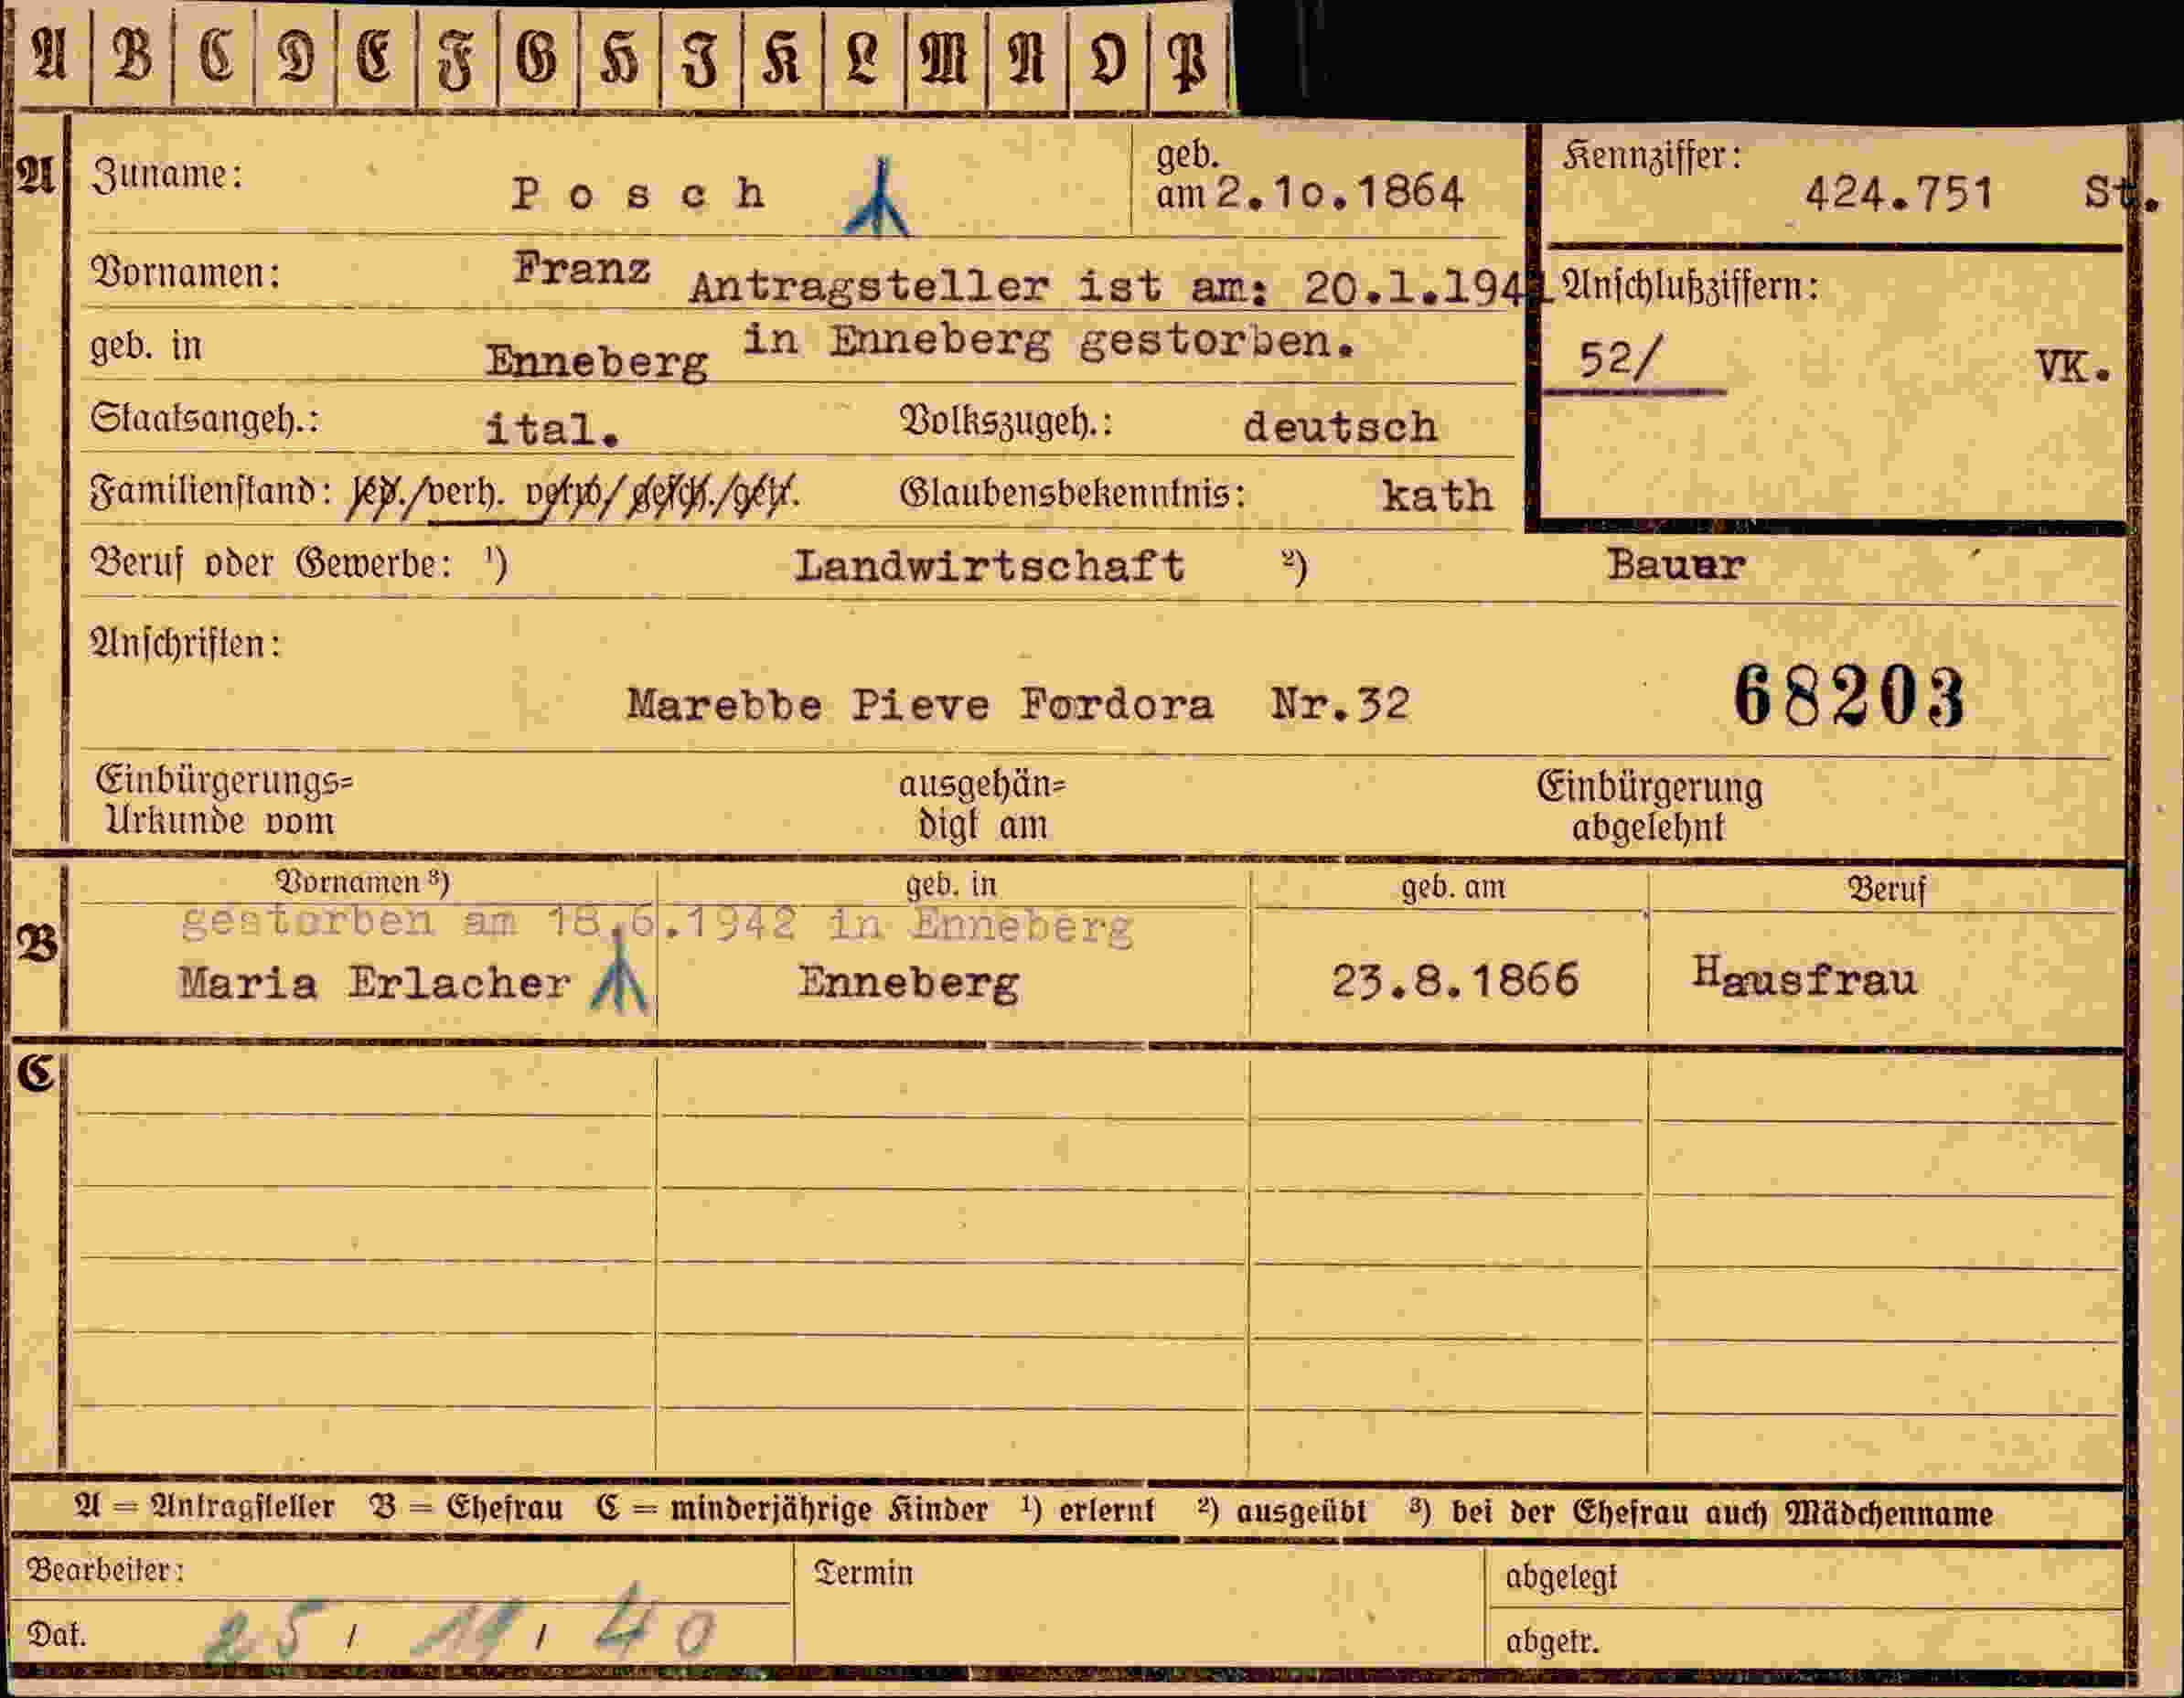 A B C D E F G H I K L M N O P
A Zuname: Posch geb. am 2.10.1864 Kennziffer: 424.751 St.
Vornamen: Franz Antragsteller ist am: 20.1.1941 Anschlußziffern:
geb. in Enneberg in Enneberg gestorben. 52/ VK.
Staatsangeh.: ital. Volkszugeh.: deutsch
Familienstand: led./verh. verw/gesch./getr. Glaubensbekenntnis: kath
Beruf oder Gewerbe: ¹) Landwirtschaft ²) Bauer
Anschriften:
Marebbe Pieve Fordora Nr.32 68203
Einbürgerungs= ausgehän= Einbürgerung
Urkunde vom digt am abgelehnt
Vornamen ³) geb. in geb. am Beruf
gestorben am 18.6.1942 in Enneberg
B Maria Erlacher Enneberg 23.8.1866 Hausfrau
C
A = Antragsteller B = Ehefrau C = minderjährige Kinder ¹) erlernt ²) ausgeübt ³) bei der Ehefrau auch Mädchenname
Bearbeiter: Termin abgelegt
Dat. 25 / / 40 abgetr.